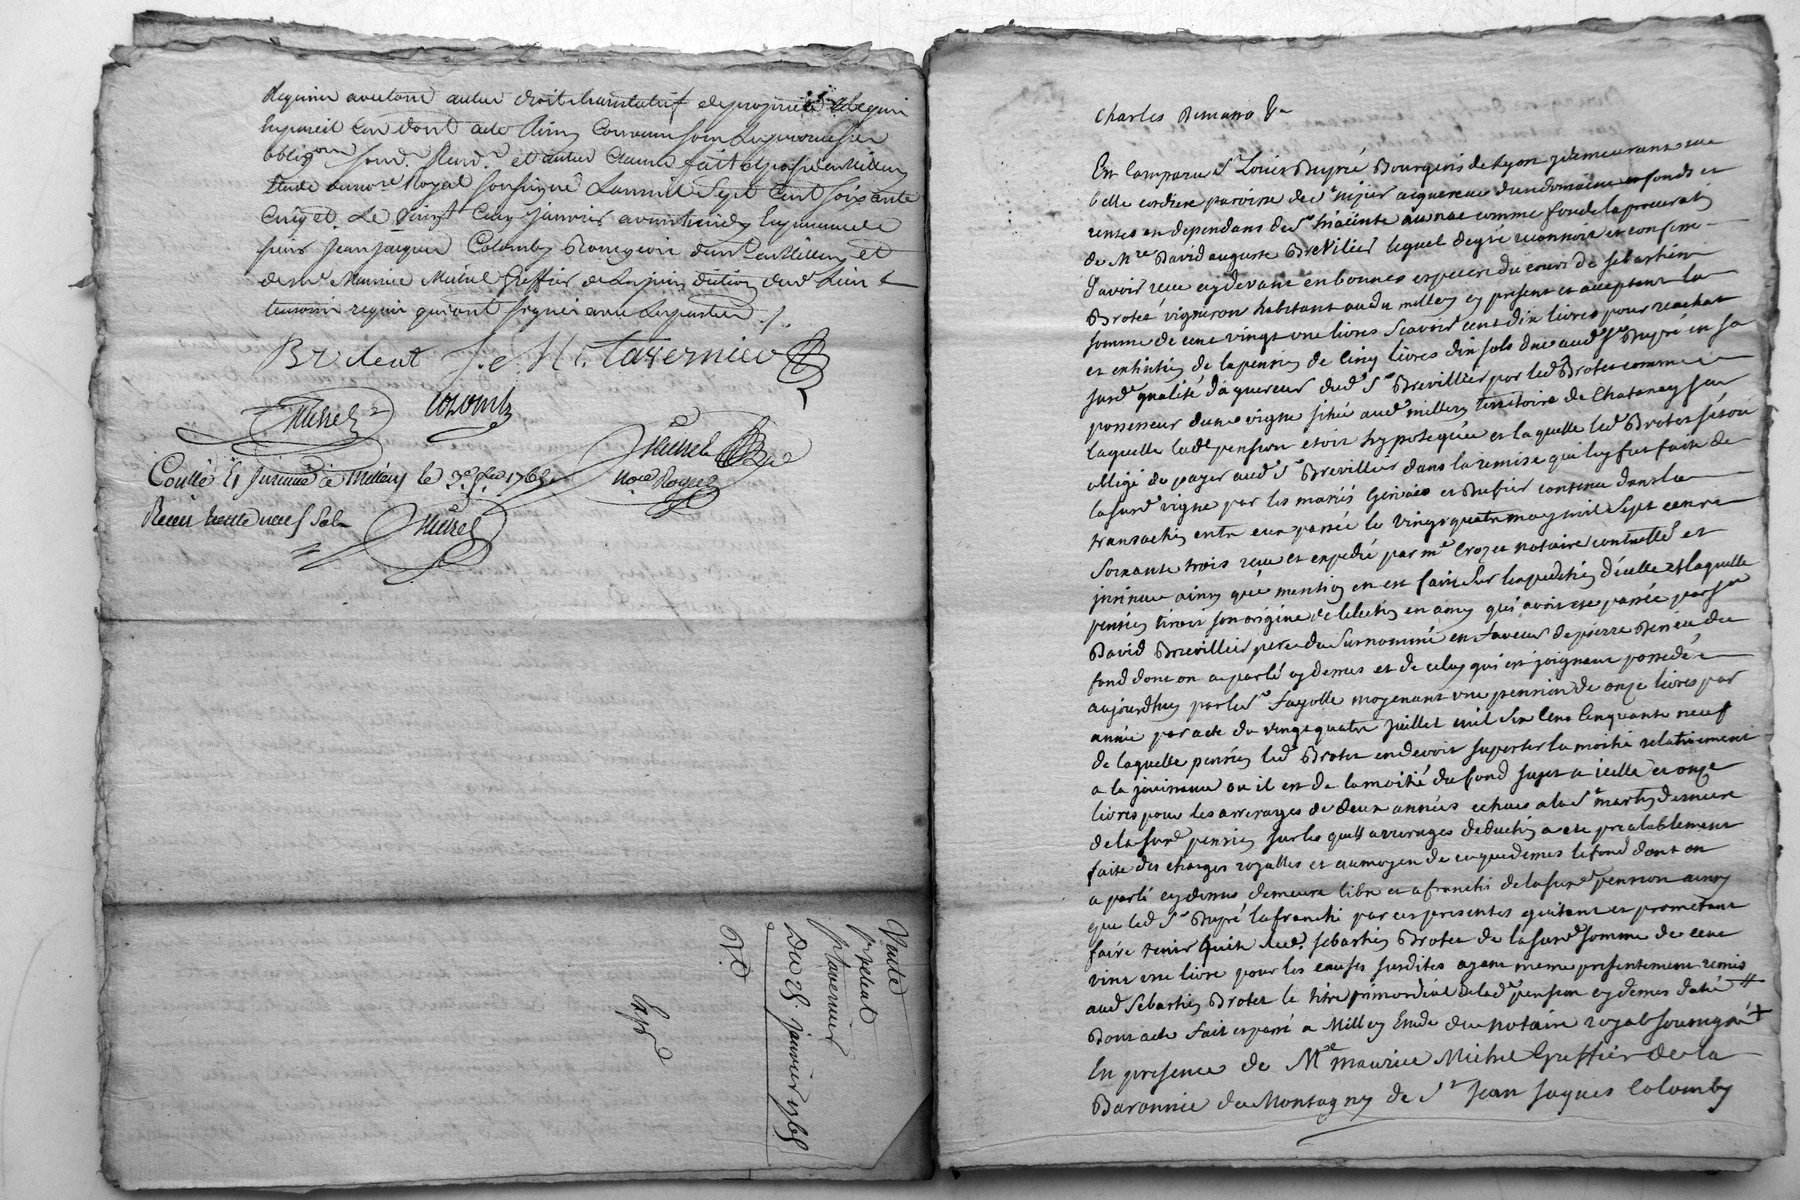 requerir avec tout autre droit translatif de propriété
en pareil cas dont acte Ainsy Convenu
oblig.on et autre Clause fait et passé a Millery
étude du no.re Royal soussigné L'an mil Sept Cent soixante
Cinq et Le Vingt Cinq Janvier avant midy En presence de
sieur Jean Jacques Colomby Bourgeois dem.t a Millery et
de m.e Maurice Michel Greffier de La jurisdiction dud. Lieu
temoins requis qui ont signé avec Les parties ./.
Brdent J. C. H. Tavernier
Michel Colomby
Michel
no.re Royal
Conllé Et Insinué a Millery le 3.e f.ver 1765
Receu trente neuf Sols Michel
Vente
p.r peleat
p.r Tavernier
Du 25 janvier 1765
Exp.d
Charles Demario &a
Est Comparu S.r Louis Dupré Bourgeois de Lyon y demeurant rue
belle cordiere paroisse de S.t nizier aiquereur d'un domaine fonds et
rentes en dependans de S.r hiacinte comme fondé de la procura.on
de M.re David auguste Brevilier lequel de gré reconnoit et confesse
d'avoir receu cy devant en bonnes especes du cours de Sebastien
Brotet vigneron habitant aud.t millery cy present et acceptant la
somme de cent vingt une livres Scavoir cent dix livres pour rachat
et extinction de la pension de Cinq livres dix sols due aud. S.r Dupré en sa
surd.e qualité d'aiquereur dud. S.r Brevillier par led. Brotet comme
possesseur d'une vigne située aud. millery territoire de Chatanay sur
laquelle lad.e pension etoit hypotequée et laquelle led. Brotet s'etoit
obligé de payer aud. S.r Brevillier dans la remise qui luy fut faite de
la surd.e vigne par les mariés et Dufier contenue dans la
transaction entr'eux passée le vingt quatre may mil sept cent
soixante trois receu et expedié par m.e Crozet notaire contrellé et
insinué ainsy que mention en est faite sur l'expedition d'icelle et laquelle
pension tiroit son origine de l'election en amy qui avoit été passée par S.r
David Brevillier pere du surnommé en faveur de pierre du
fond dont on a parlé cy dessus et de celuy qui est joignant possedé
aujourdhuy par le S.r Fayolle moyenant une pension de onze livres par
année par acte du vingt quatre juillet mil Six Cent Cinquante neuf
de laquelle pension led. Brotet en devoit suporter la moitié relativement
a la jouissance ou il est de la moitié du fond sujet a icelle et onze
livres pour les arrerages de deux années echues a la S.t martin derniere
de la surd.e pension sur les quels arrerages deduction a eté prealablement
faite des charges royalles et au moyen de ce que dessus le fond dont on
a parlé cy dessus demeure libre et afranchi de la surd.e pension ainsy
que led. S.r Dupré l'afranchi par ces presentes quittant et prometant
faire tenir quitte led. Sebastien Brotet de la surd.e somme de cent
vint une livre pour les causes susdites ayant meme presentement remis
aud. Sebastien Brotet le titre primordial de lad.e pension cy dessus daté #
Dont acte fait et passé a Millery Etude du notaire royal soussigné +
En presence de M.re maurice Michel Greffier de la
Baronnie de Montagny de S.r Jean Jaques Colomby